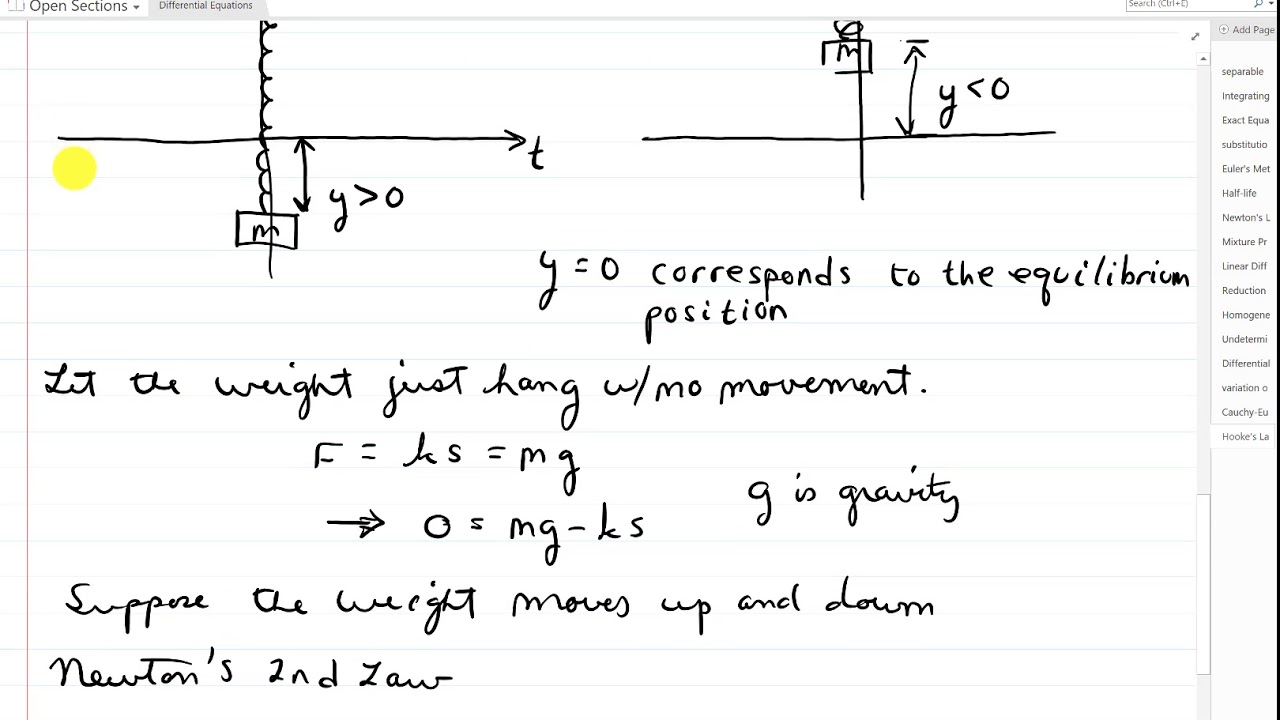 Open Sections
Differential Equations
Search (Ctrl+E)
Add Page
separable
Integrating
Exact Equa
substitutio
Euler's Met
Half-life
Newton's L
Mixture Pr
Linear Diff
Reduction
Homogene
Undetermi
Differential
variation o
Cauchy-Eu
Hooke's La
m
y < 0
t
y > 0
m
y = 0 corresponds to the equilibrium
position
Let the weight just hang w/no movement.
F = ks = mg
g is gravity
⇒ 0 = mg - ks
Suppose the weight moves up and down
Newton's 2nd Law